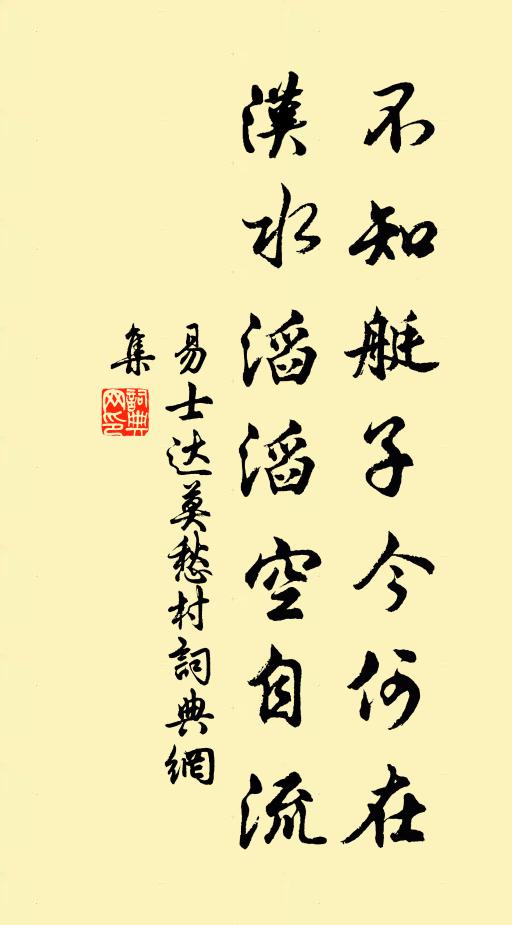 不知艇子今何在
漢水滔滔空自流
易士达莫愁村詞典網
集
詞典
网印